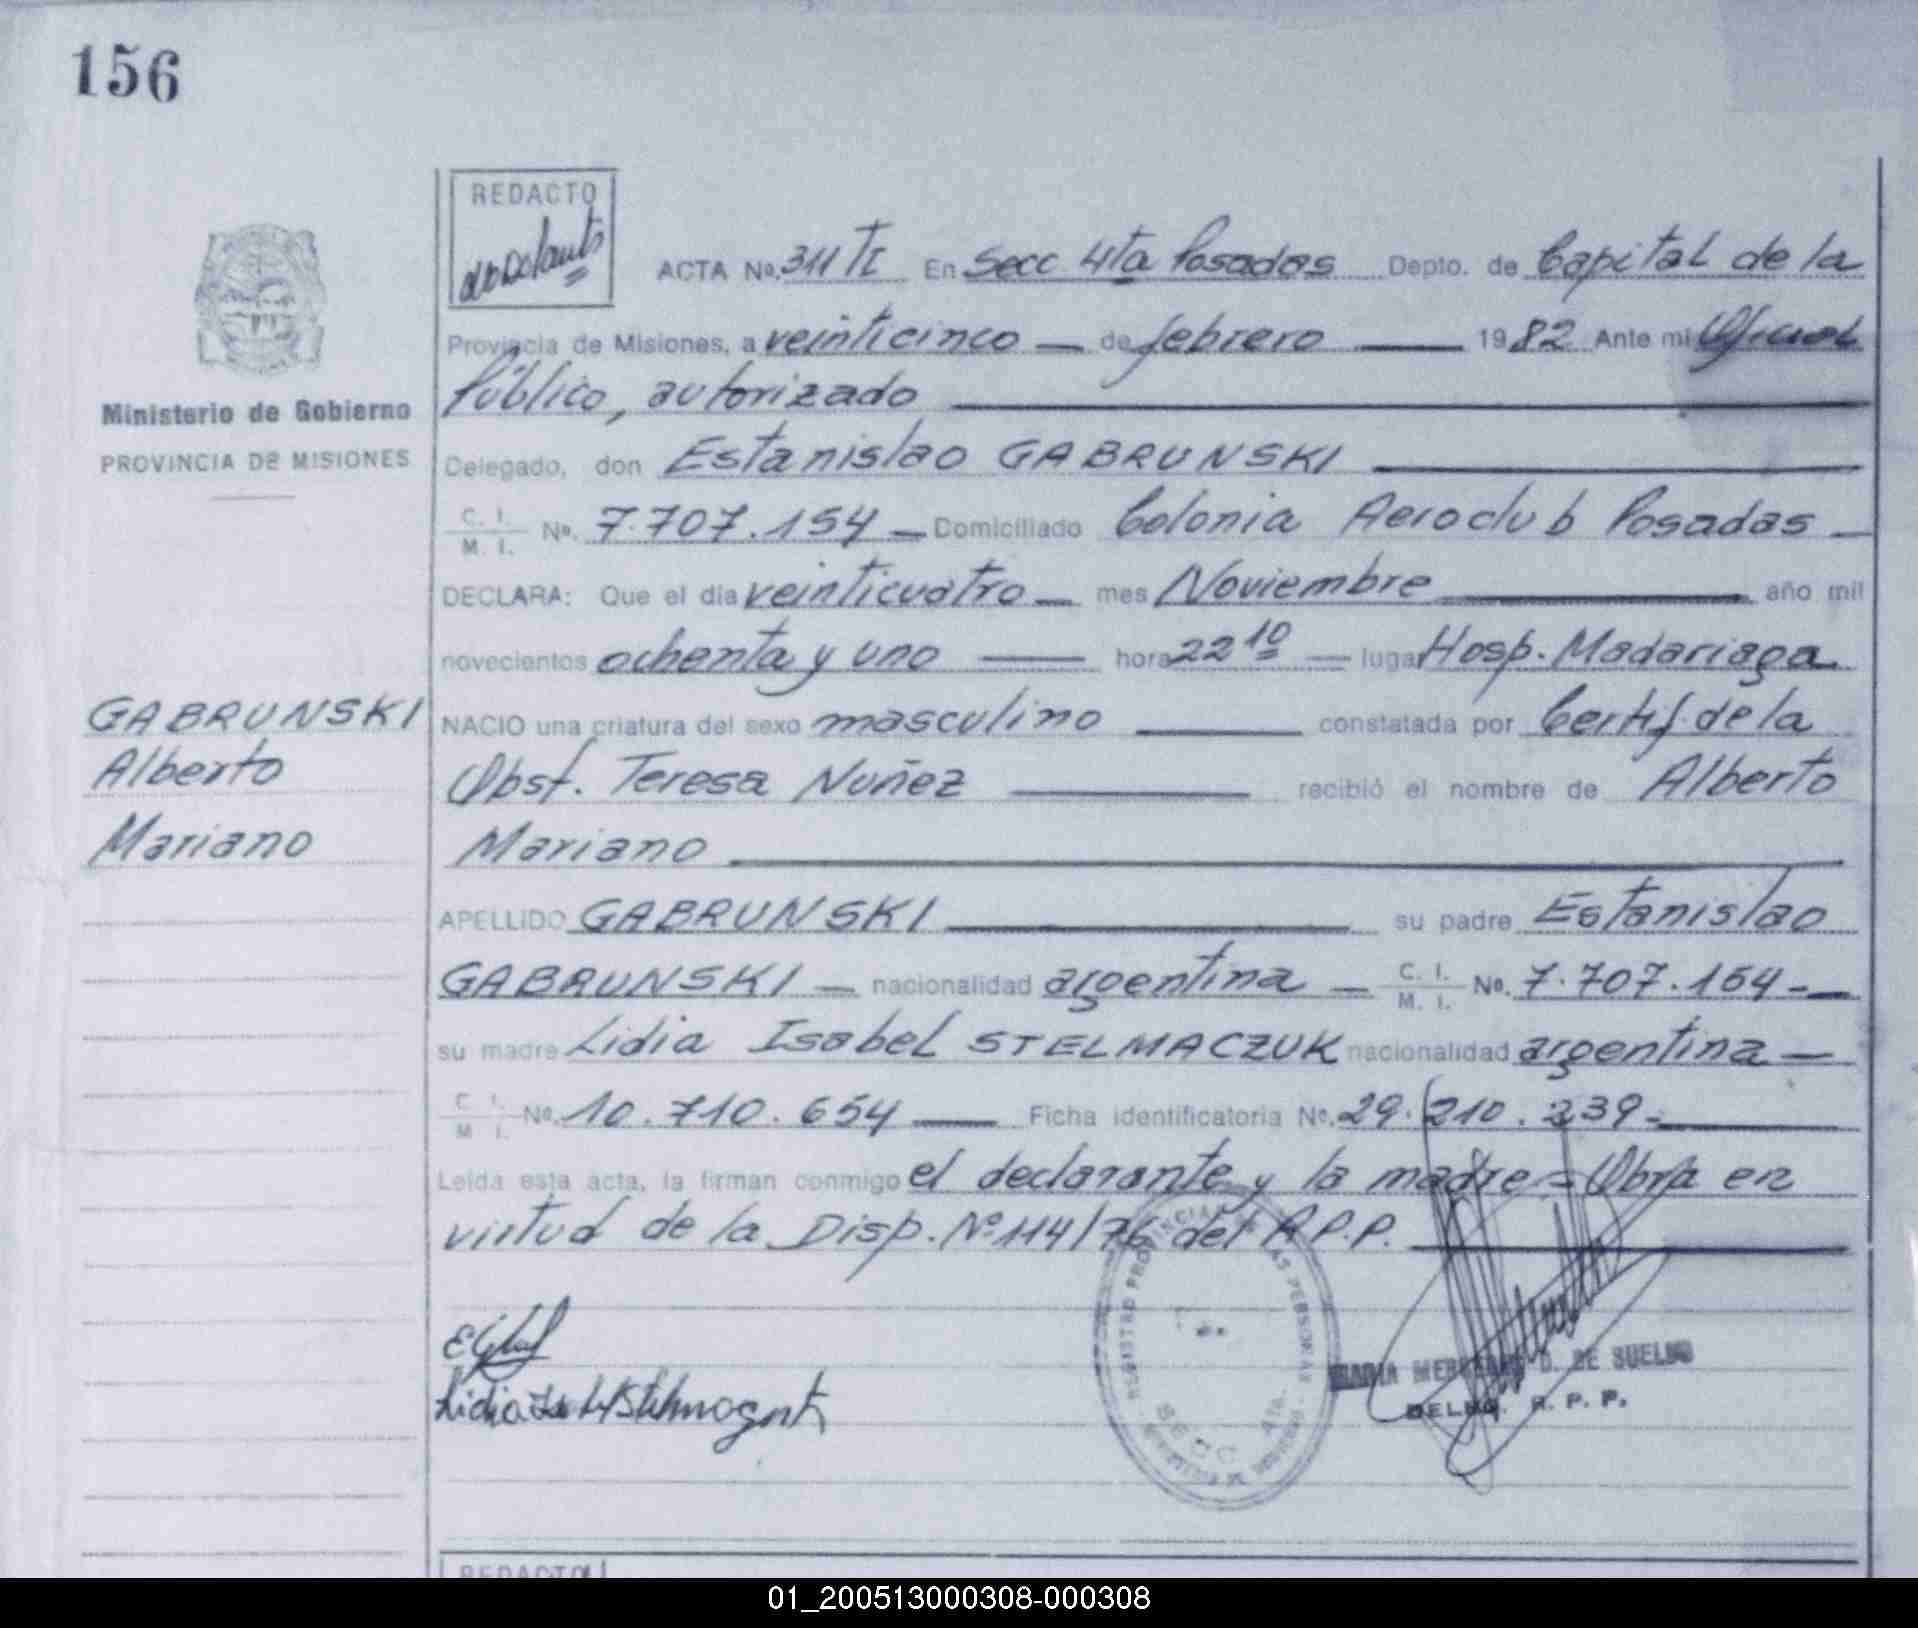 156
REDACTO
ACTA No. 311 TI En Secc 4ta Posadas Depto. de Capital de la
Provincia de Misiones, a veinticinco — de febrero — 1982 Ante mi Oficial
Público, autorizado
Ministerio de Gobierno
PROVINCIA DE MISIONES
Delegado, don Estanislao GABRUNSKI
C. I. / M. I. No. 7.707.154 — Domiciliado Colonia Aeroclub Posadas —
DECLARA: Que el día veinticuatro — mes Noviembre — año mil
novecientos ochenta y uno — hora 22 10 — lugar Hosp. Madariaga
GABRUNSKI
Alberto
Mariano
NACIO una criatura del sexo masculino — constatada por Certif. de la
Obst. Teresa Nuñez — recibió el nombre de Alberto
Mariano
APELLIDO GABRUNSKI — su padre Estanislao
GABRUNSKI — nacionalidad argentina — C. I. / M. I. No. 7.707.154 -
su madre Lidia Isabel STELMACZUK nacionalidad argentina —
C. I. / M. I. No. 10.710.654 — Ficha identificatoria No. 29.210.239 -
Leída esta acta, la firman conmigo el declarante y la madre = Obra en
virtud de la Disp. Nº 114/76 del R.P.P.
REGISTRO PROVINCIAL DE LAS PERSONAS
SECC 4ta.
MARIA MERCEDES D. DE SUELDO
DELEG. R. P. P.
REDACTO
01_200513000308-000308